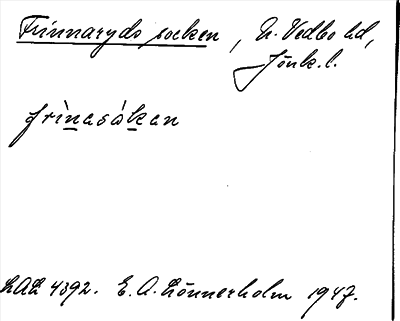 Frinnaryds socken, N. Vedbo hd,
Jönk. l.
frìnasåkan
LAL 4392. E. A. Lönnerholm 1947.